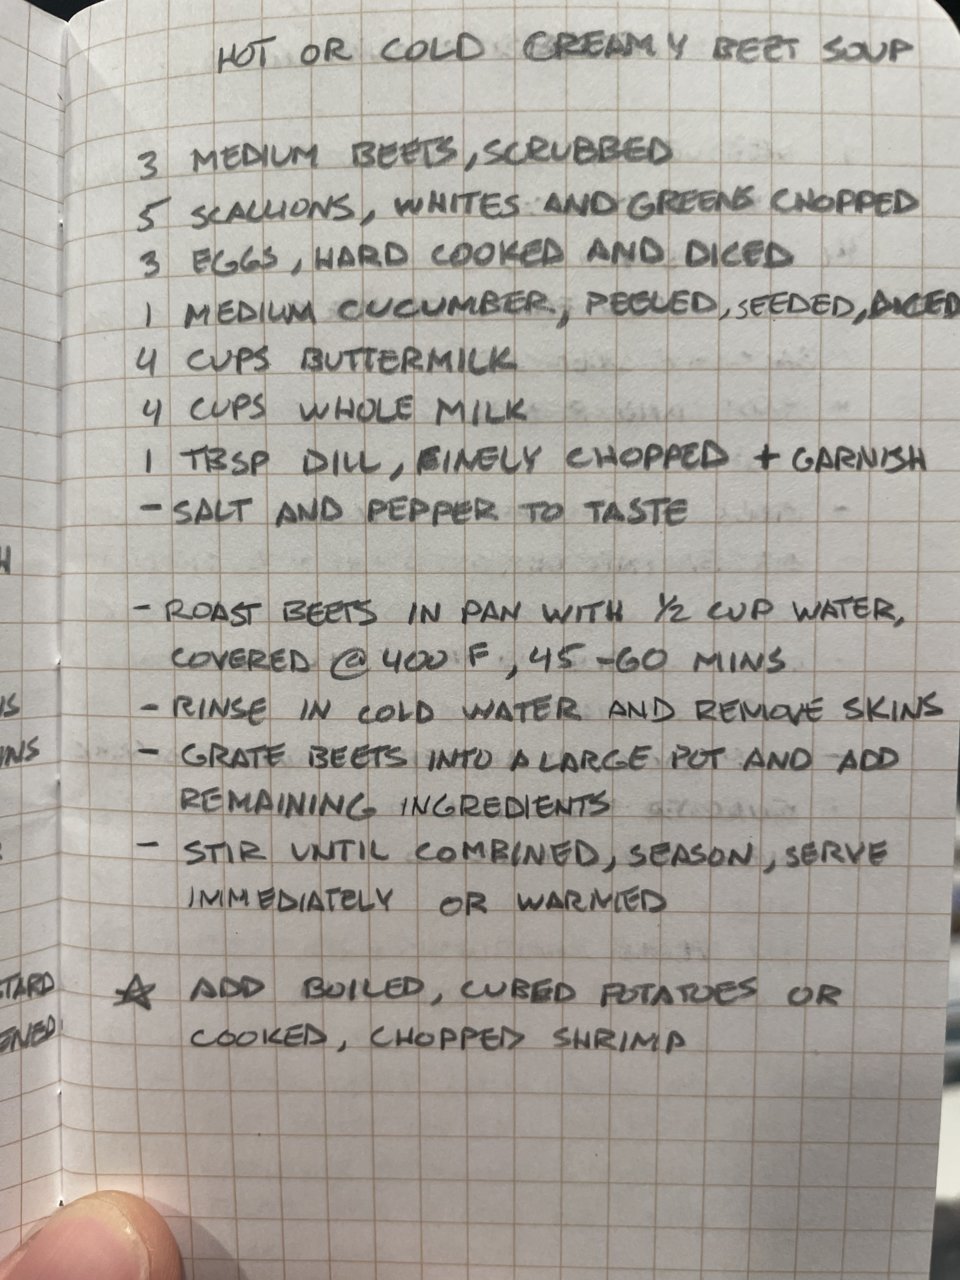 HOT OR COLD CREAMY BEET SOUP
3 MEDIUM BEETS, SCRUBBED
5 SCALLIONS, WHITES AND GREENS CHOPPED
3 EGGS, HARD COOKED AND DICED
1 MEDIUM CUCUMBER, PEELED, SEEDED, DICED
4 CUPS BUTTERMILK
4 CUPS WHOLE MILK
1 TBSP DILL, FINELY CHOPPED + GARNISH
- SALT AND PEPPER TO TASTE
- ROAST BEETS IN PAN WITH 1/2 CUP WATER,
COVERED @ 400 F, 45-60 MINS
- RINSE IN COLD WATER AND REMOVE SKINS
- GRATE BEETS INTO A LARGE POT AND ADD
REMAINING INGREDIENTS
- STIR UNTIL COMBINED, SEASON, SERVE
IMMEDIATELY OR WARMED
☆ ADD BOILED, CUBED POTATOES OR
COOKED, CHOPPED SHRIMP